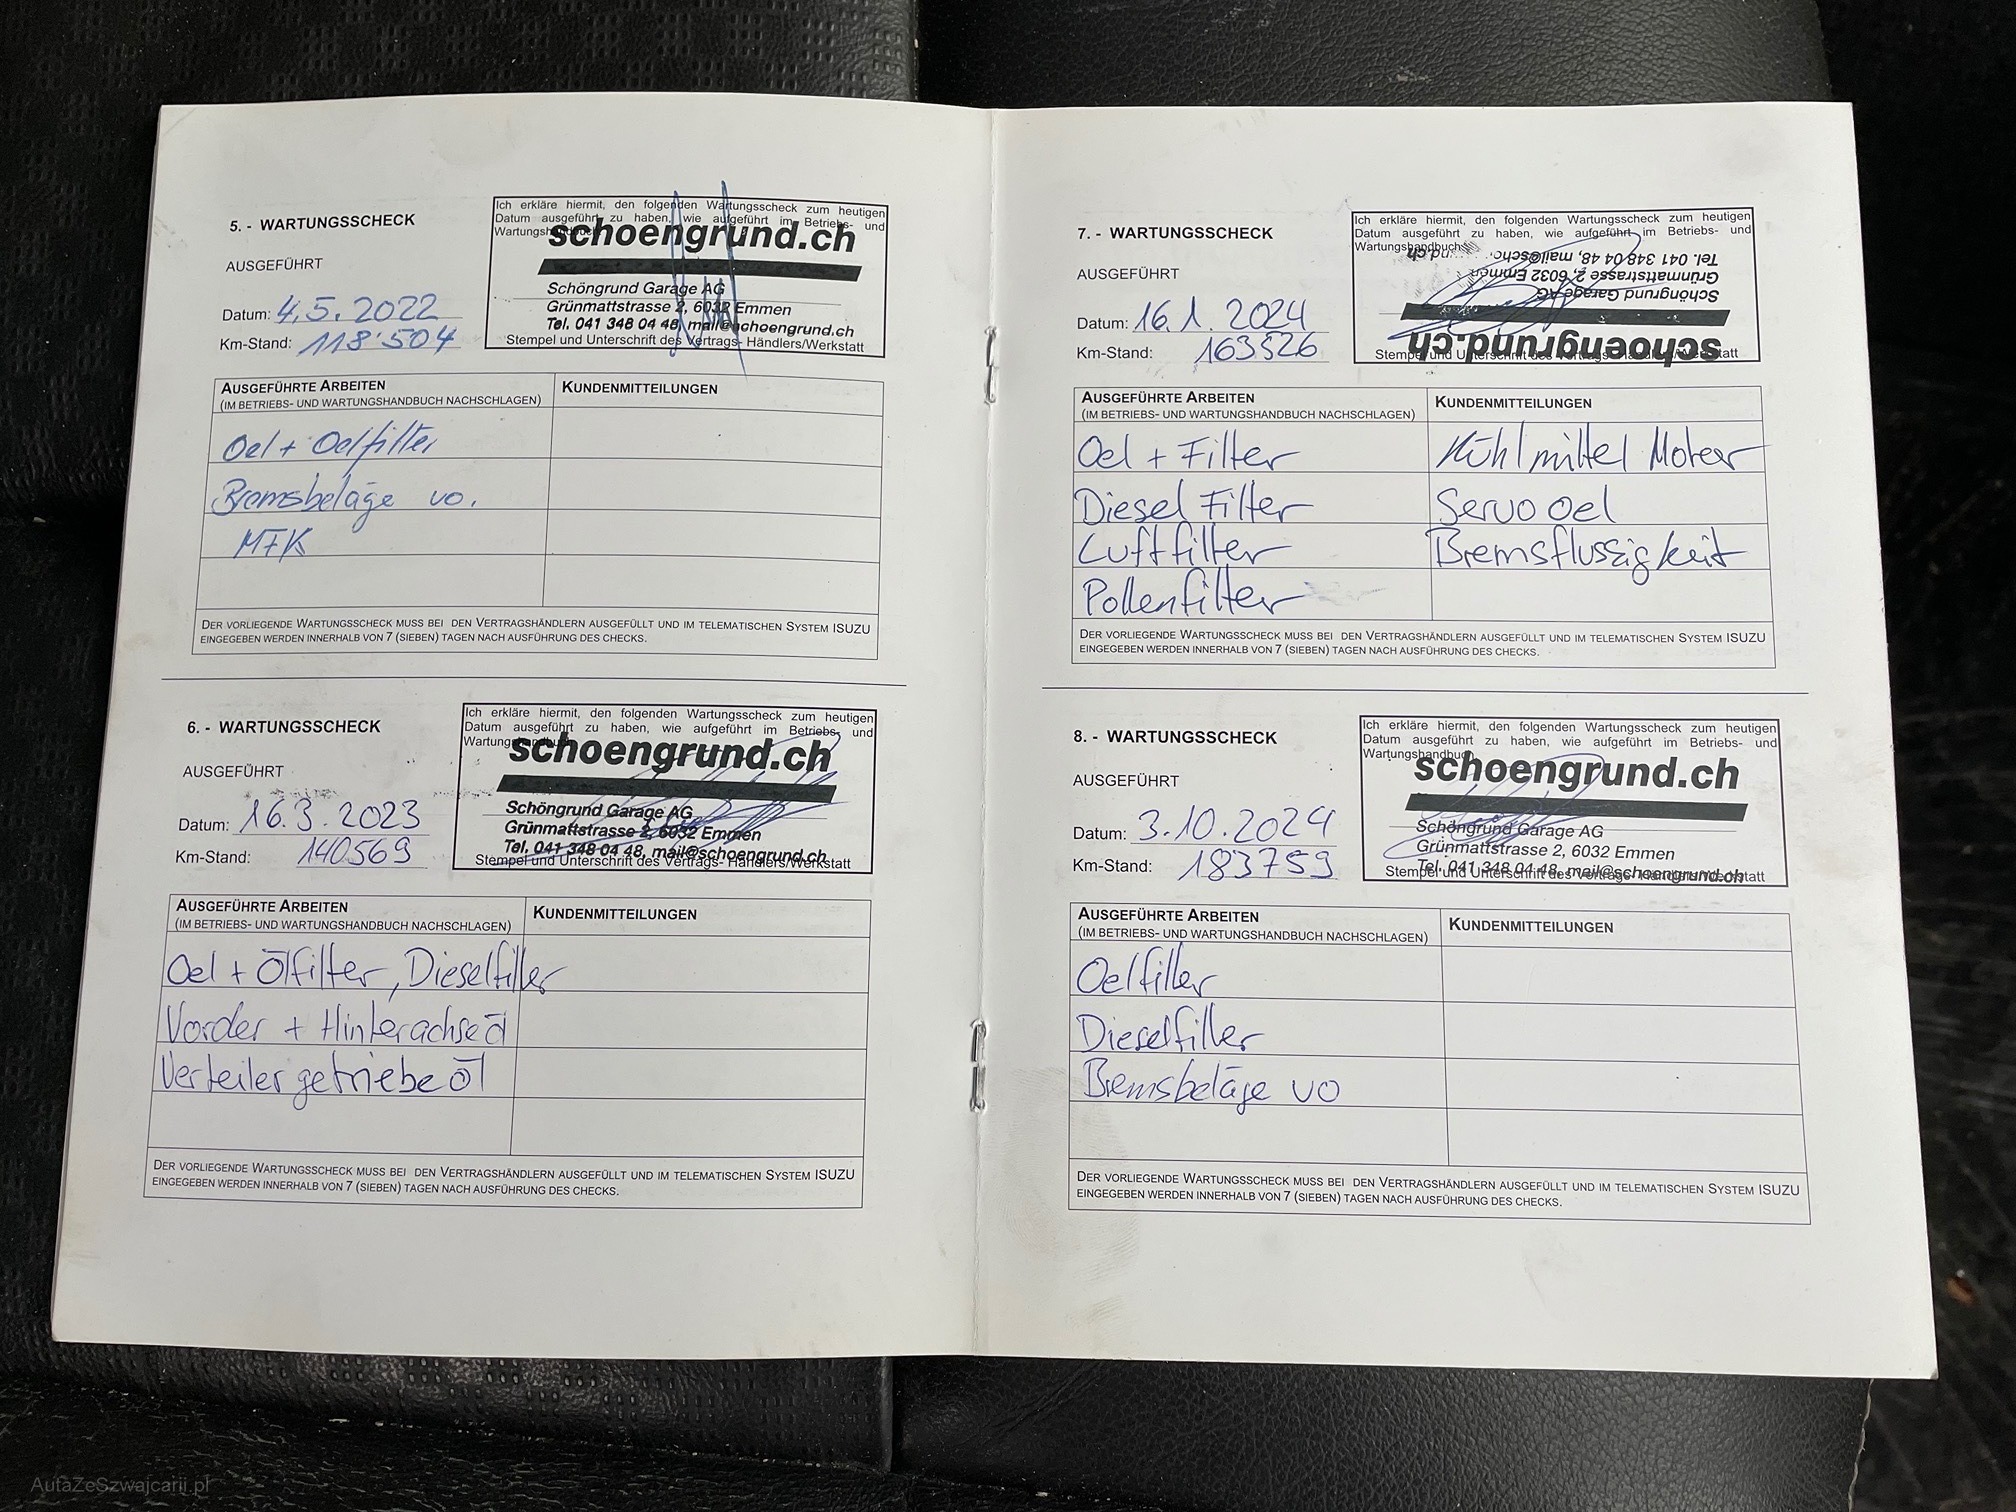 5. - WARTUNGSSCHECK
AUSGEFÜHRT
Datum: 4.5.2022
Km-Stand: 118'504
Ich erkläre hiermit, den folgenden Wartungsscheck zum heutigen
Datum ausgeführt zu haben, wie aufgeführt im Betriebs- und
schoengrund.ch
Schöngrund Garage AG
Grünmattstrasse 2, 6032 Emmen
Tel. 041 348 04 48, mail@schoengrund.ch
Stempel und Unterschrift des Vertrags- Händlers/Werkstatt
AUSGEFÜHRTE ARBEITEN
(IM BETRIEBS- UND WARTUNGSHANDBUCH NACHSCHLAGEN)
KUNDENMITTEILUNGEN
Oel + Oelfilter
Bremsbeläge vo.
MFK
DER VORLIEGENDE WARTUNGSSCHECK MUSS BEI DEN VERTRAGSHÄNDLERN AUSGEFÜLLT UND IM TELEMATISCHEN SYSTEM ISUZU
EINGEGEBEN WERDEN INNERHALB VON 7 (SIEBEN) TAGEN NACH AUSFÜHRUNG DES CHECKS.
6. - WARTUNGSSCHECK
AUSGEFÜHRT
Datum: 16.3.2023
Km-Stand: 140569
Ich erkläre hiermit, den folgenden Wartungsscheck zum heutigen
Datum ausgeführt zu haben, wie aufgeführt im Betriebs- und
schoengrund.ch
Schöngrund Garage AG
Grünmattstrasse 2, 6032 Emmen
Tel. 041 348 04 48, mail@schoengrund.ch
Stempel und Unterschrift des Vertrags- Händlers/Werkstatt
AUSGEFÜHRTE ARBEITEN
(IM BETRIEBS- UND WARTUNGSHANDBUCH NACHSCHLAGEN)
KUNDENMITTEILUNGEN
Oel + Ölfilter, Dieselfilter
Vorder + Hinterachseöl
Verteilergetriebeöl
DER VORLIEGENDE WARTUNGSSCHECK MUSS BEI DEN VERTRAGSHÄNDLERN AUSGEFÜLLT UND IM TELEMATISCHEN SYSTEM ISUZU
EINGEGEBEN WERDEN INNERHALB VON 7 (SIEBEN) TAGEN NACH AUSFÜHRUNG DES CHECKS.
7. - WARTUNGSSCHECK
AUSGEFÜHRT
Datum: 16.1.2024
Km-Stand: 163526
Ich erkläre hiermit, den folgenden Wartungsscheck zum heutigen
Datum ausgeführt zu haben, wie aufgeführt im Betriebs- und
Wartungshandbuch
schoengrund.ch
Schöngrund Garage AG
Grünmattstrasse 2, 6032 Emmen
Tel. 041 348 04 48,
Stempel und Unterschrift des Vertrags- Händlers/Werkstatt
AUSGEFÜHRTE ARBEITEN
(IM BETRIEBS- UND WARTUNGSHANDBUCH NACHSCHLAGEN)
KUNDENMITTEILUNGEN
Oel + Filter
Kühlmittel Motor
Diesel Filter
Servo oel
Luftfilter
Bremsflussigkeit
Pollenfilter
DER VORLIEGENDE WARTUNGSSCHECK MUSS BEI DEN VERTRAGSHÄNDLERN AUSGEFÜLLT UND IM TELEMATISCHEN SYSTEM ISUZU
EINGEGEBEN WERDEN INNERHALB VON 7 (SIEBEN) TAGEN NACH AUSFÜHRUNG DES CHECKS.
8. - WARTUNGSSCHECK
AUSGEFÜHRT
Datum: 3.10.2024
Km-Stand: 183759
Ich erkläre hiermit, den folgenden Wartungsscheck zum heutigen
Datum ausgeführt zu haben, wie aufgeführt im Betriebs- und
Wartungshandbuch
schoengrund.ch
Schöngrund Garage AG
Grünmattstrasse 2, 6032 Emmen
Tel. 041 348 04 48, mail@schoengrund.ch
Stempel und Unterschrift des Vertrags- Händlers/Werkstatt
AUSGEFÜHRTE ARBEITEN
(IM BETRIEBS- UND WARTUNGSHANDBUCH NACHSCHLAGEN)
KUNDENMITTEILUNGEN
Oelfilter
Dieselfilter
Bremsbeläge vo
DER VORLIEGENDE WARTUNGSSCHECK MUSS BEI DEN VERTRAGSHÄNDLERN AUSGEFÜLLT UND IM TELEMATISCHEN SYSTEM ISUZU
EINGEGEBEN WERDEN INNERHALB VON 7 (SIEBEN) TAGEN NACH AUSFÜHRUNG DES CHECKS.
AutaZeSzwajcarii.pl